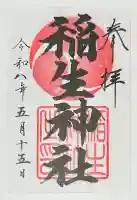 参拝
稲生神社
令和八年五月十五日